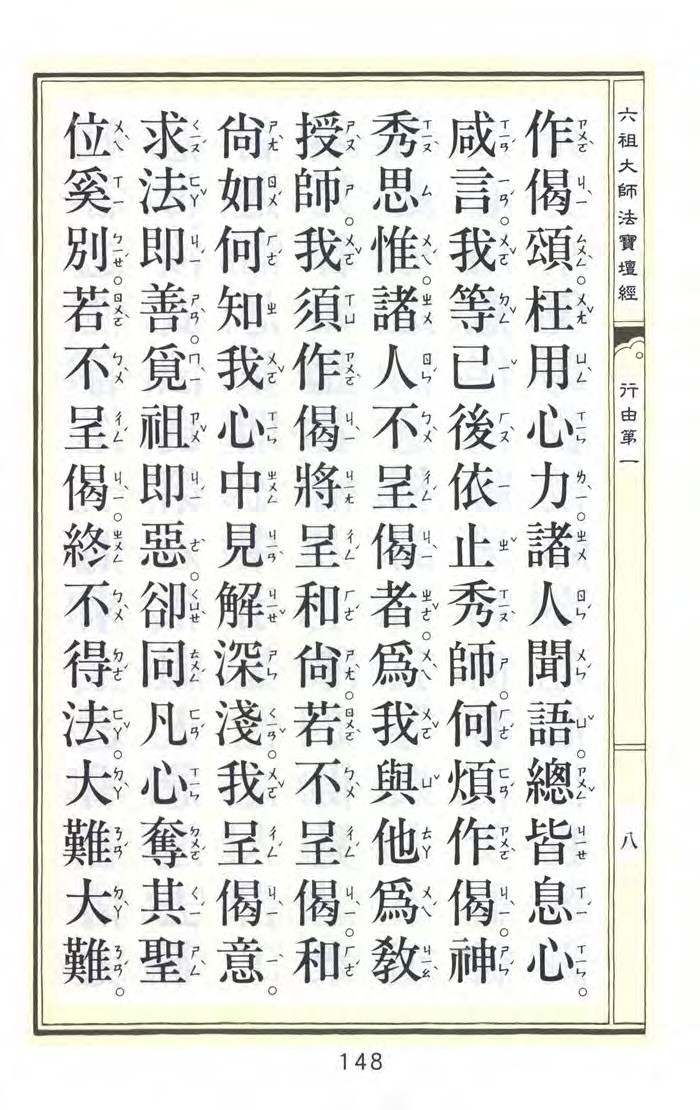 六祖大師法寶壇經 行由第一 八
作偈頌枉用心力。諸人聞語。總皆息心。
咸言我等已後依止秀師。何煩作偈。神
秀思惟。諸人不呈偈者。爲我與他爲教
授師。我須作偈將呈和尙。若不呈偈。和
尙如何知我心中見解深淺。我呈偈意。
求法即善。覓祖即惡。卻同凡心奪其聖
位奚別。若不呈偈。終不得法。大難大難。
148